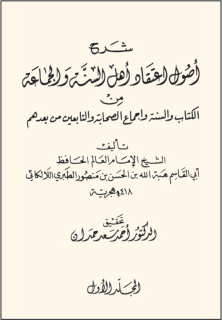 شرح
أصول اعتقاد أهل السنة والجماعة
من
الكتاب والسنة وإجماع الصحابة والتابعين من بعدهم
تأليف
الشيخ الإمام العالم الحافظ
أبي القاسم هبة الله بن الحسن بن منصور الطبري اللالكائي
٤١٨ هجرية
تحقيق
الدكتور أحمد سعد حمدان
المجلد الأول